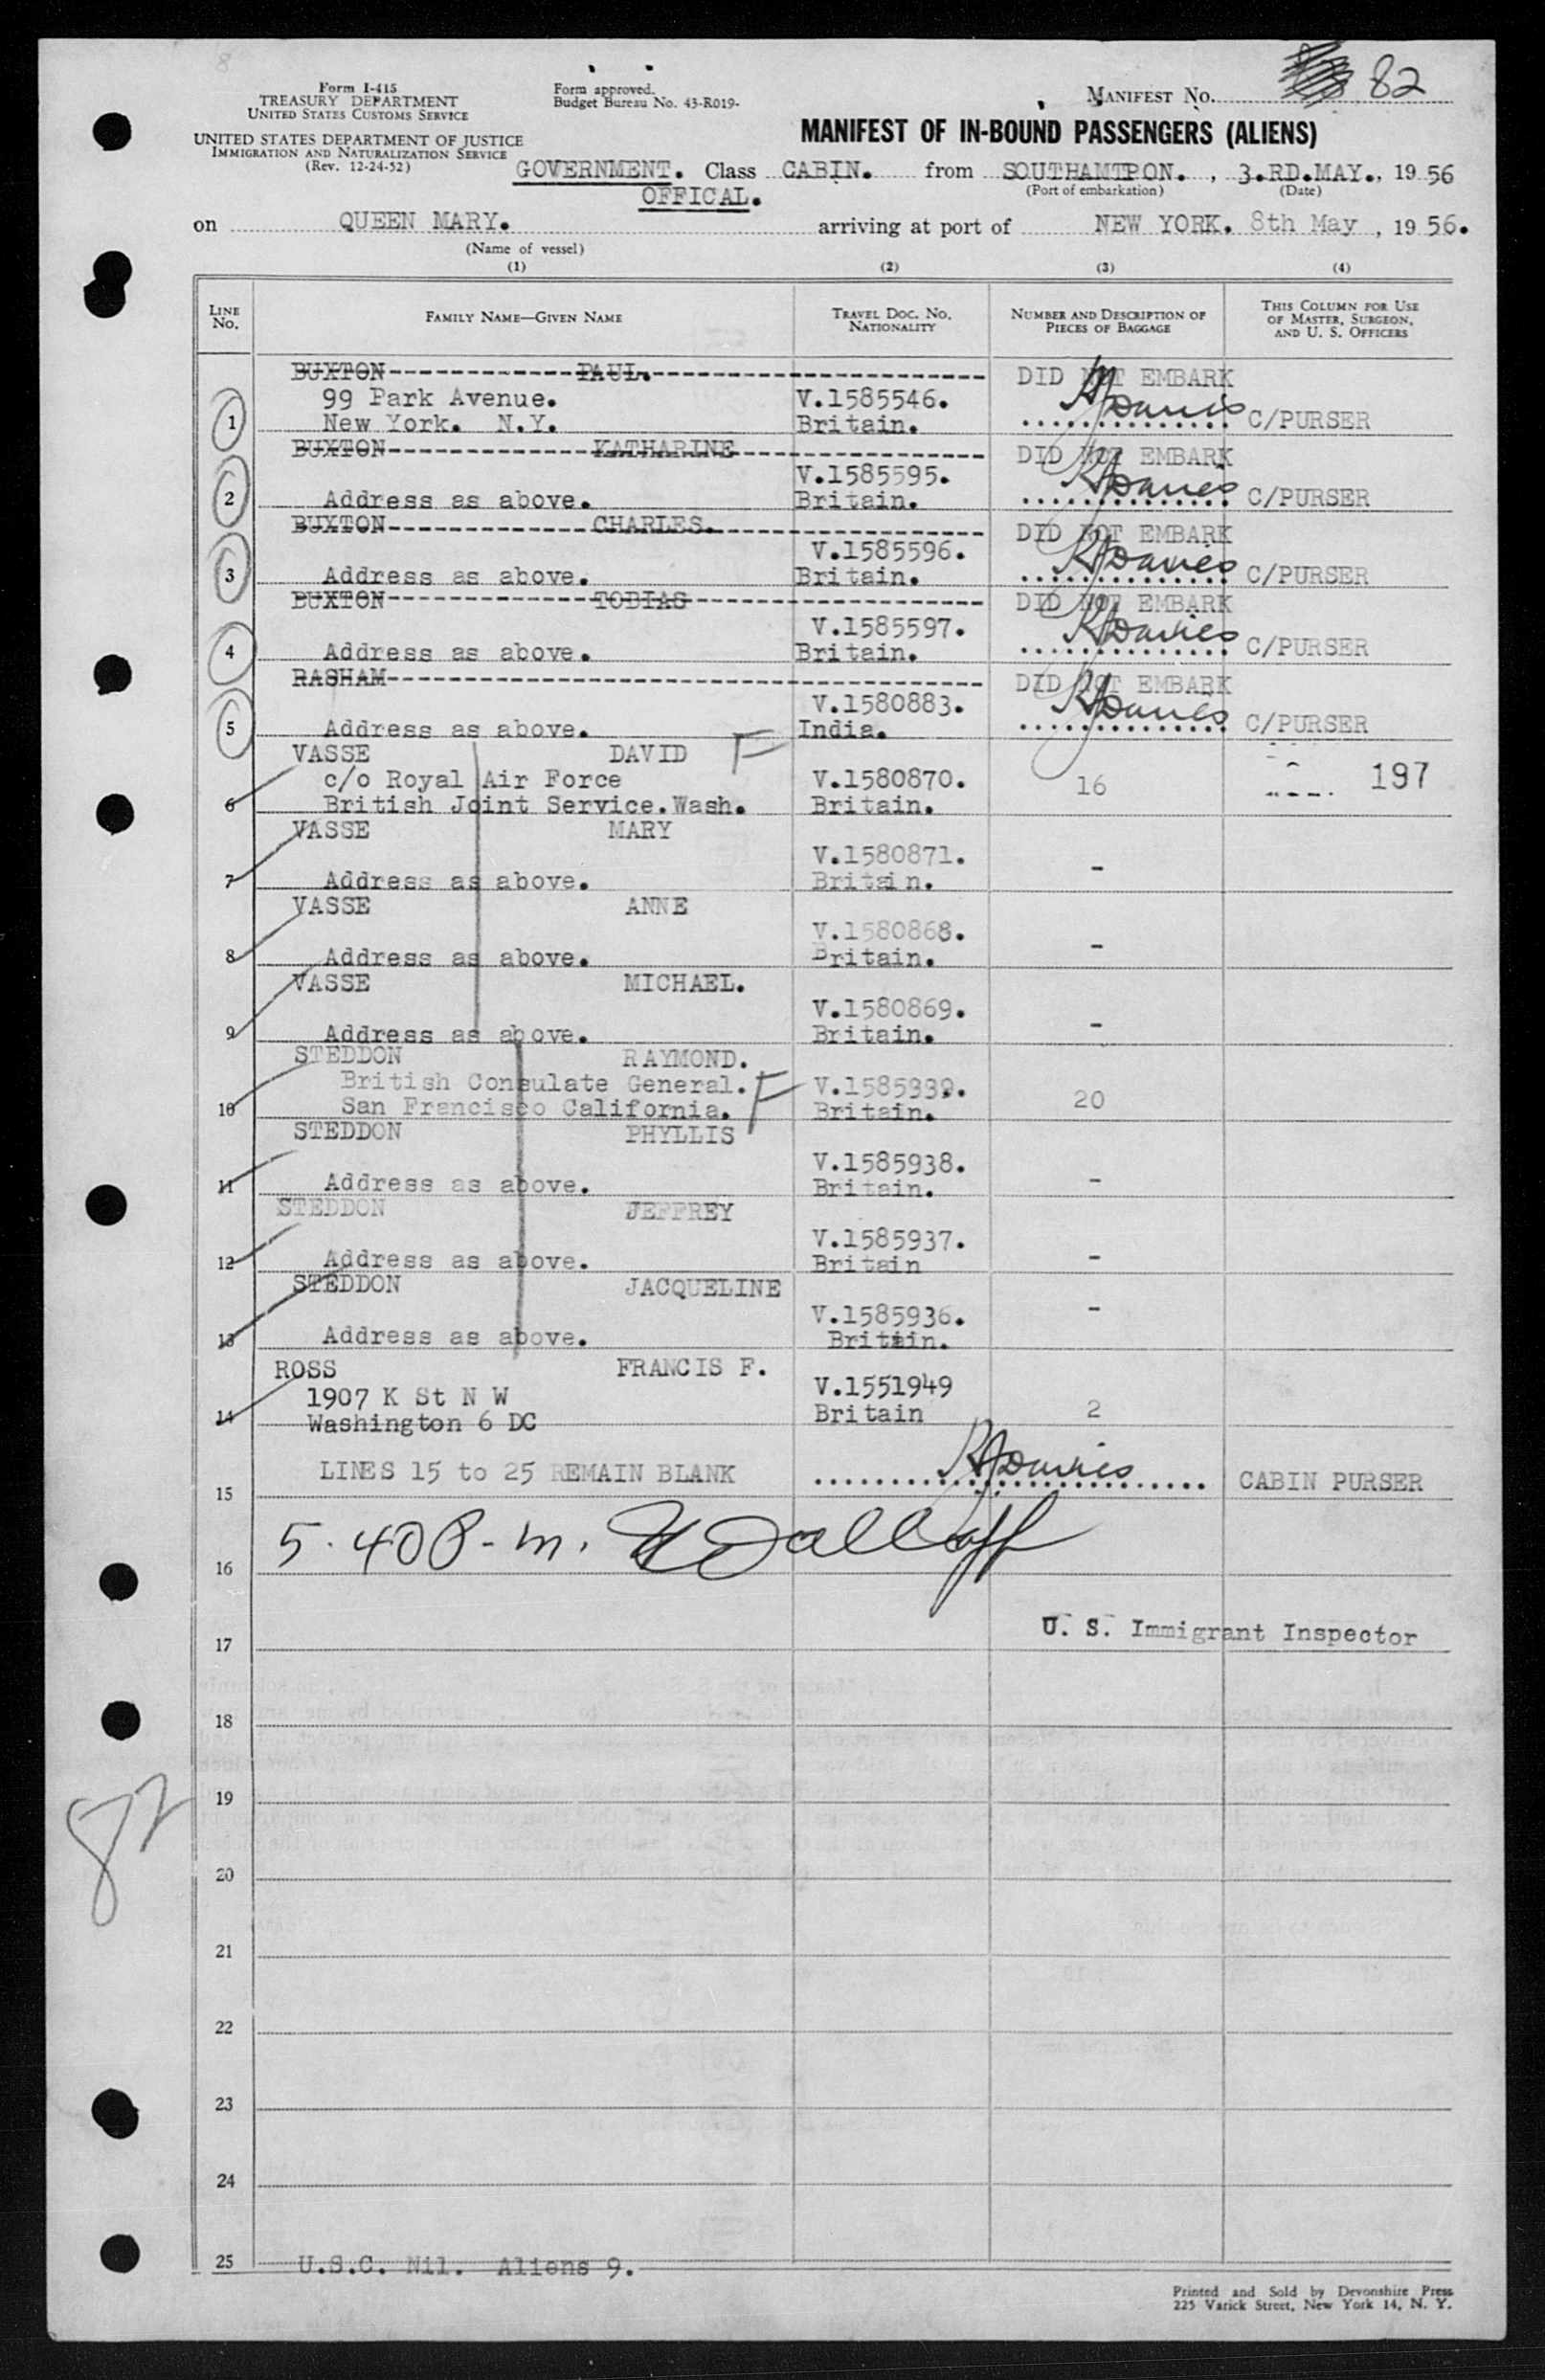 Form I-415
TREASURY DEPARTMENT
UNITED STATES CUSTOMS SERVICE
UNITED STATES DEPARTMENT OF JUSTICE
IMMIGRATION AND NATURALIZATION SERVICE
(Rev. 12-24-52)
Form approved.
Budget Bureau No. 43-R019-
MANIFEST NO. 82
MANIFEST OF IN-BOUND PASSENGERS (ALIENS)
GOVERNMENT. Class CABIN. from SOUTHAMTPON. , 3.RD.MAY., 19 56
OFFICAL. (Port of embarkation) (Date)
on QUEEN MARY. arriving at port of NEW YORK. 8th May , 19 56.
(Name of vessel)
(1) (2) (3) (4)
LINE No. FAMILY NAME—GIVEN NAME TRAVEL DOC. NO. NATIONALITY NUMBER AND DESCRIPTION OF PIECES OF BAGGAGE THIS COLUMN FOR USE OF MASTER, SURGEON, AND U. S. OFFICERS
BUXTON PAUL. DID NOT EMBARK
99 Park Avenue. V.1585546.
1 New York. N.Y. Britain. C/PURSER
BUXTON KATHARINE DID NOT EMBARK
V.1585595.
2 Address as above. Britain. C/PURSER
BUXTON CHARLES. DID NOT EMBARK
V.1585596.
3 Address as above. Britain. C/PURSER
BUXTON TOBIAS DID NOT EMBARK
V.1585597.
4 Address as above. Britain. C/PURSER
RASHAM DID NOT EMBARK
V.1580883.
5 Address as above. India. C/PURSER
VASSE DAVID F
c/o Royal Air Force V.1580870. 16 197
6 British Joint Service.Wash. Britain.
VASSE MARY
V.1580871. -
7 Address as above. Britain.
VASSE ANNE
V.1580868. -
8 Address as above. Britain.
VASSE MICHAEL.
V.1580869. -
9 Address as above. Britain.
STEDDON RAYMOND.
British Consulate General. F V.1585939. 20
10 San Francisco California. Britain.
STEDDON PHYLLIS
V.1585938. -
11 Address as above. Britain.
STEDDON JEFFREY
V.1585937. -
12 Address as above. Britain
STEDDON JACQUELINE
V.1585936. -
13 Address as above. Britain.
ROSS FRANCIS F.
1907 K St N W V.1551949
14 Washington 6 DC Britain 2
LINES 15 to 25 REMAIN BLANK CABIN PURSER
15
5.40 P.m.
16
U. S. Immigrant Inspector
17
18
82
19
20
21
22
23
24
25 U.S.C. Nil. Aliens 9.
Printed and Sold by Devonshire Press
225 Varick Street, New York 14, N. Y.